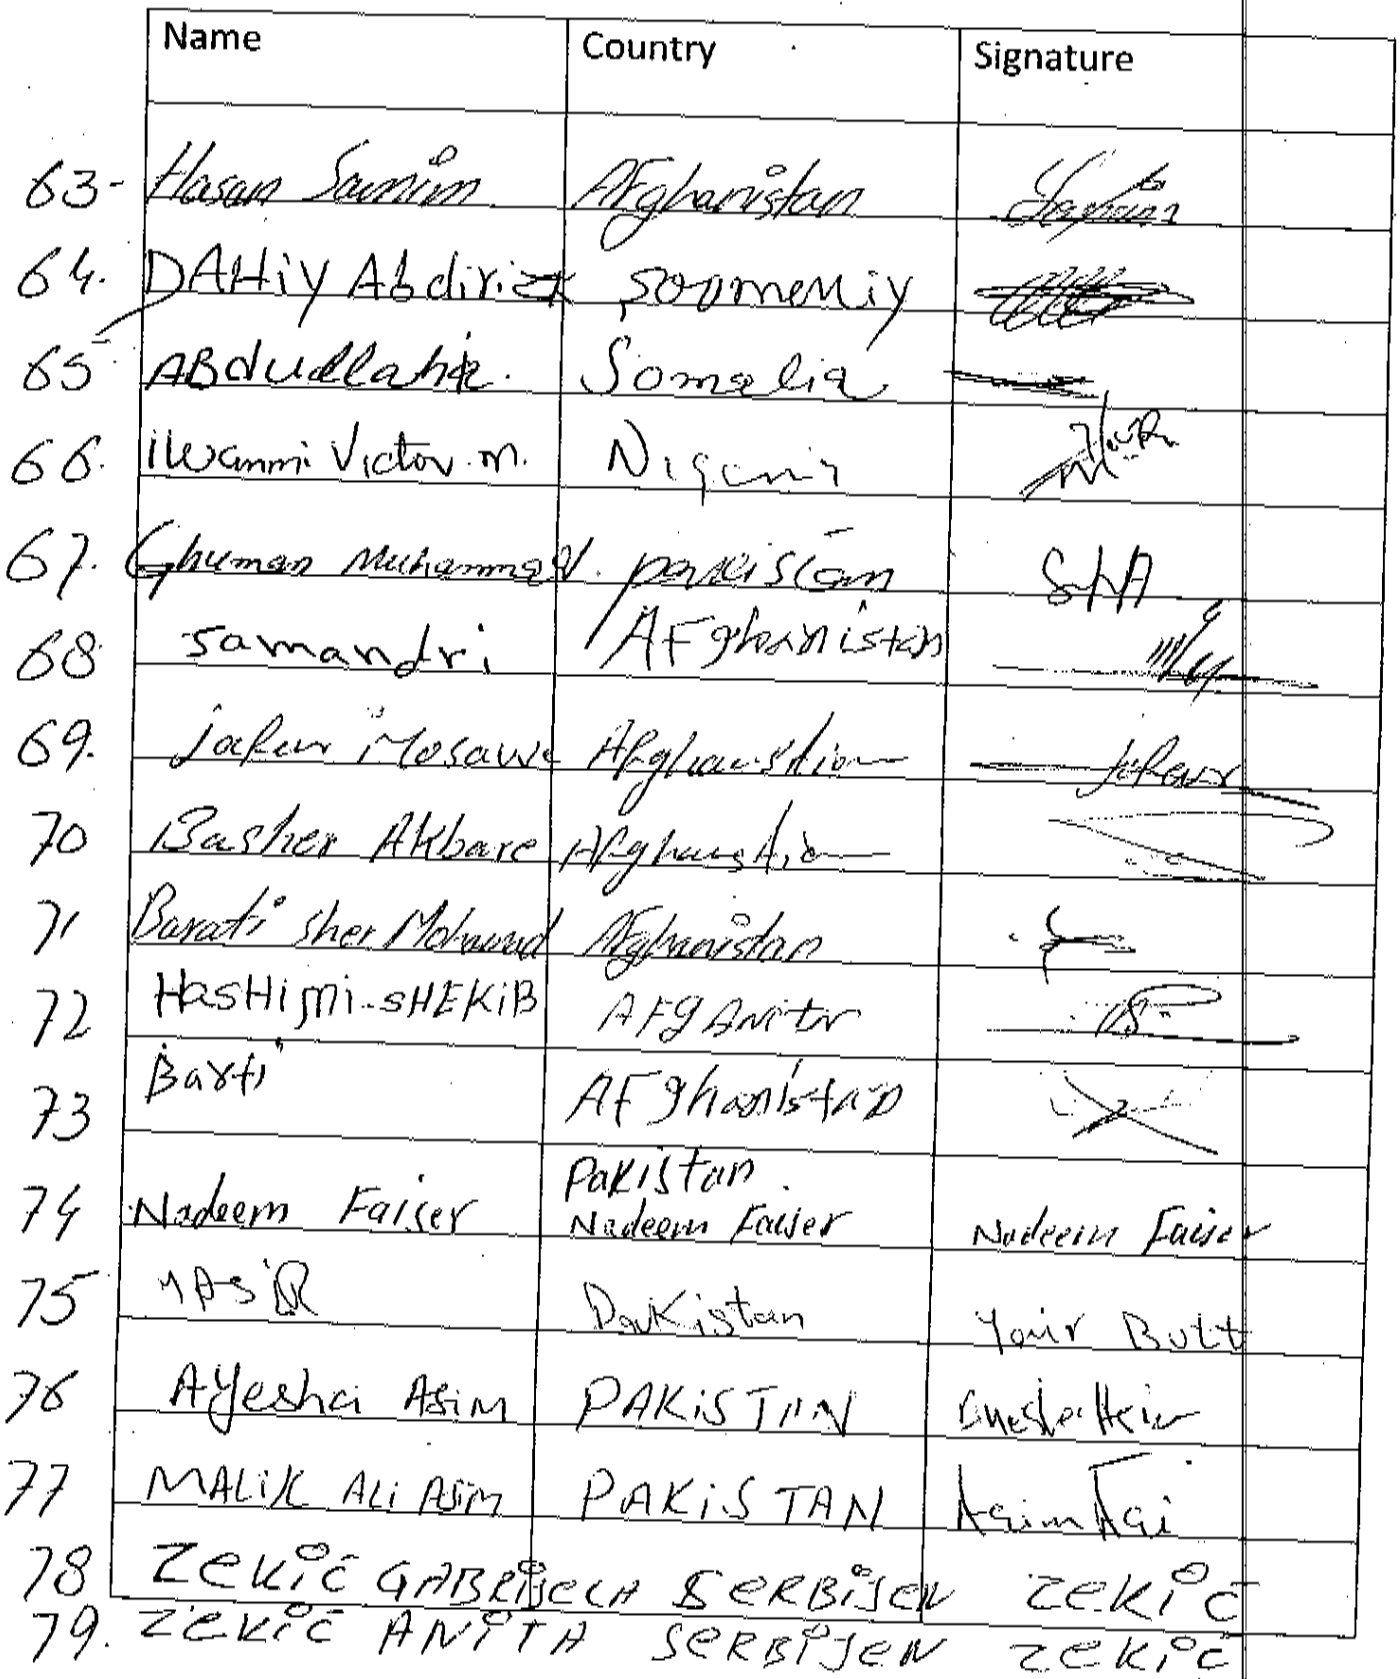 Name Country Signature
63- Hasan Samim Afghanistan
64. DAHiY Abdirizk
65 ABdullahi. Somalia
66. Victor. m.
67. Ghuman Muhammad. pakistan SHA
68 Samandri AFghanistan
69. jafur Mosawe Afghanistian
70 Basher Akbare Afghanistian
71 Barati sher Mohamad Afghanistan
72 HasHimi-SHEKiB AFgAnitn
73 Barti AFghanistan
74 Nadeem Faiser Pakistan Nadeem Faiser Nadeem Faiser
75 YASiR Pakistan Butt
76 AYesha ASiM PAKiSTAN
77 MALiK ALi ASiM PAKiSTAN Asim
78 ZEKiĆ GABRijELA SERBijEN ZEKiĆ
79. ZEKiĆ ANiTA SERBijEN ZEKiĆ